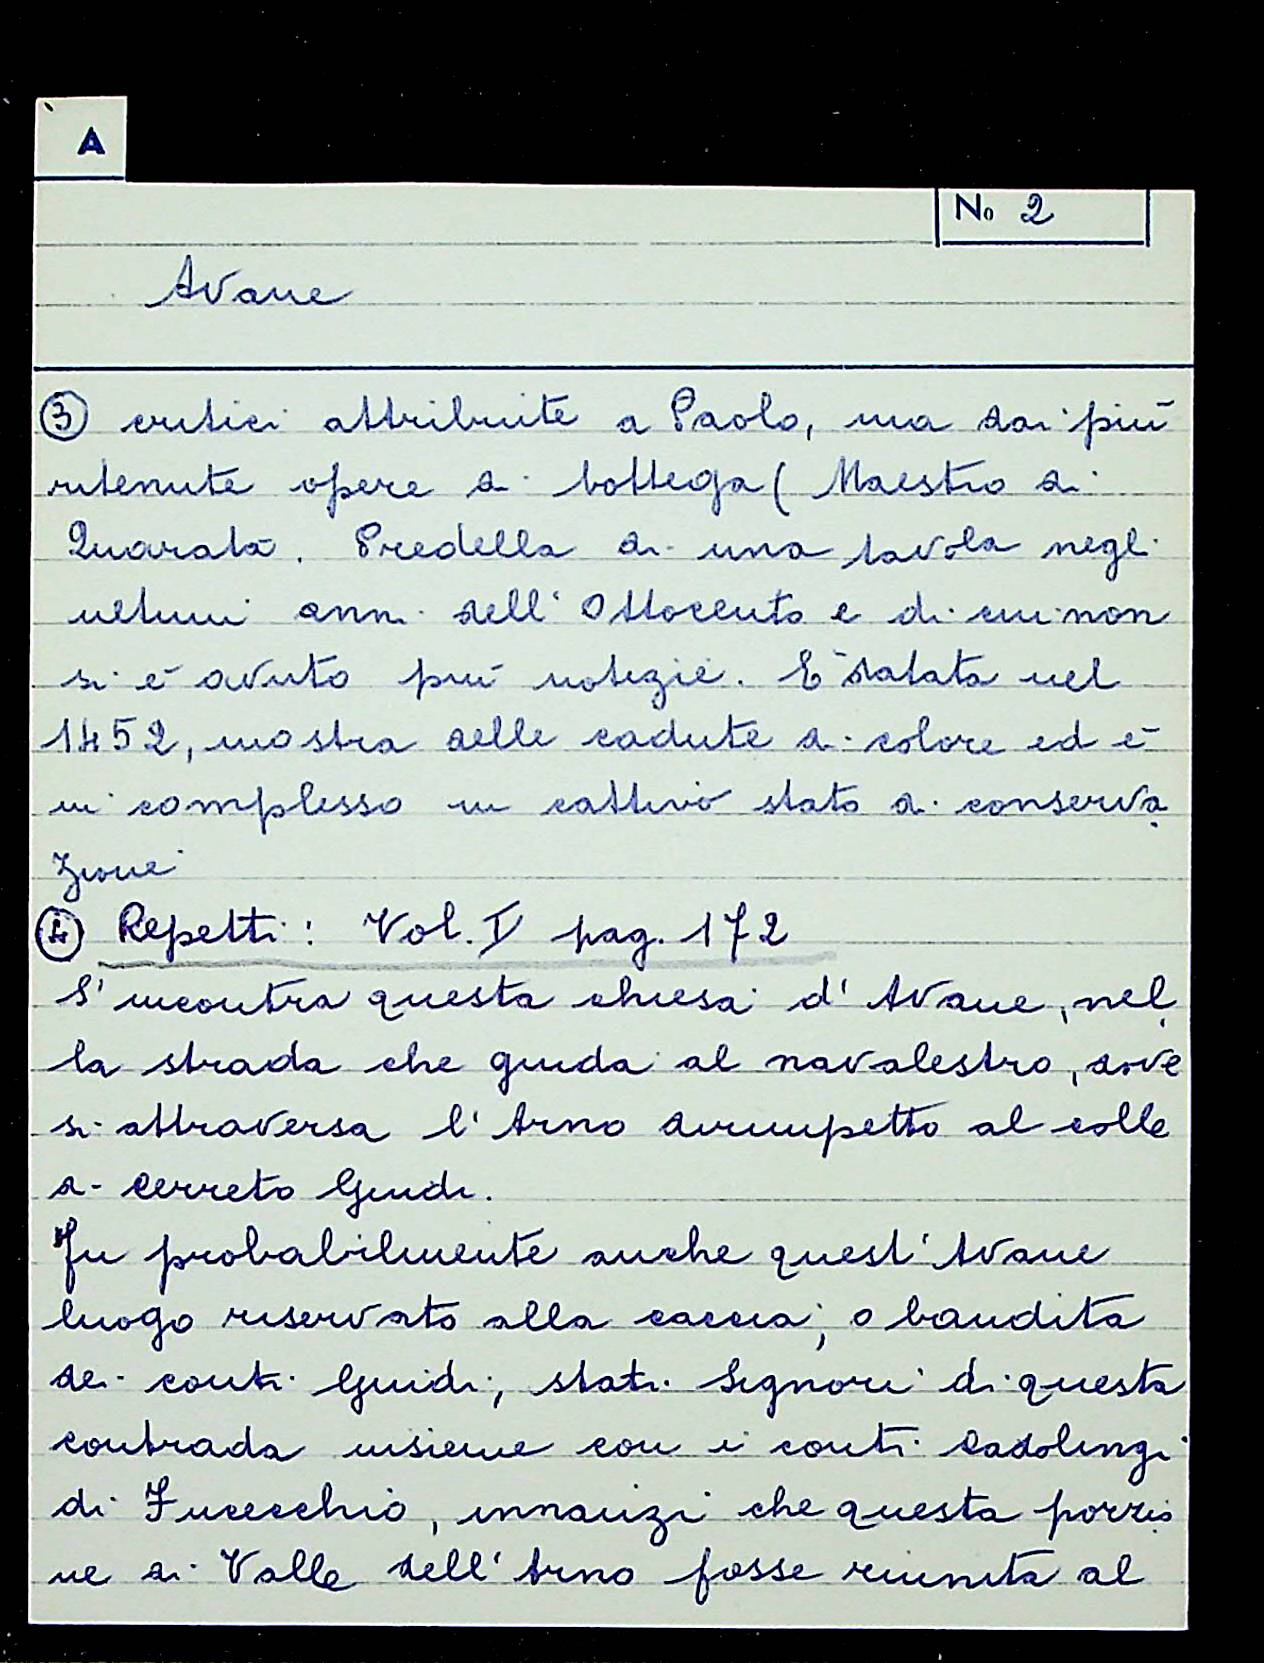 A
No 2
Avane
③ critici attribuite a Paolo, ma dai più
ritenute opere di bottega (Maestro di
Quarata. Predella di una tavola negli
ultimi anni dell'Ottocento e di cui non
si è avuto più notizie. È datata nel
1452, mostra delle cadute di colore ed è
in complesso in cattivo stato di conserva
zione
④ Repetti: Vol. I pag. 172
S'incontra questa chiesa d'Avane, nel
la strada che guida al navalestro, dove
si attraversa l'Arno dirimpetto al colle
di Cerreto Guidi.
Fu probabilmente anche quest'Avane
luogo riservato alla caccia, o bandita
dei conti Guidi, stati Signori di questa
contrada insieme con i conti Cadolingi
di Fucecchio, innanzi che questa porzio
ne di Valle dell'Arno fosse riunita al